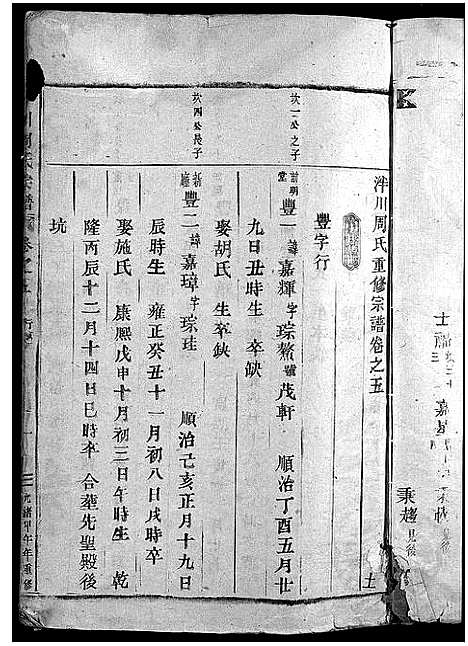 泮川周氏重修宗譜卷之五
土
豐字行
坎一公之子
前明堂
豐一 諱嘉輝字琮鰲號茂軒 順治丁酉五月廿
九日丑時生 卒缺
娶胡氏 生卒缺
坎四公長子
新廳
豐二 諱嘉璋字琮珪 順治己亥正月十九日
辰時生 雍正癸丑十一月初八日戌時卒
娶施氏 康熙戊申十月初三日午時生 乾
隆丙辰十二月十四日巳時卒 合葬先聖殿後
坑
光緒甲午年重修
秉趨 見後